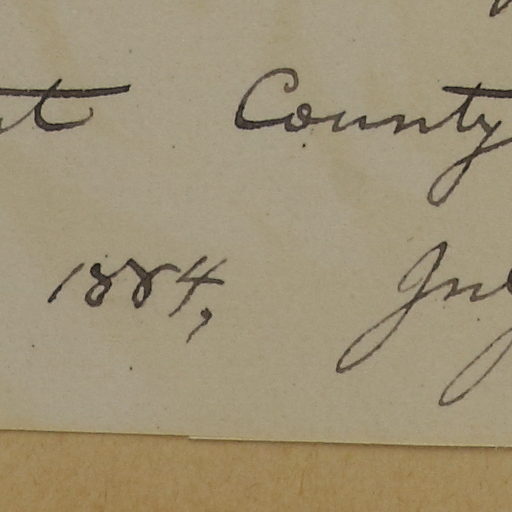 County
1884, July